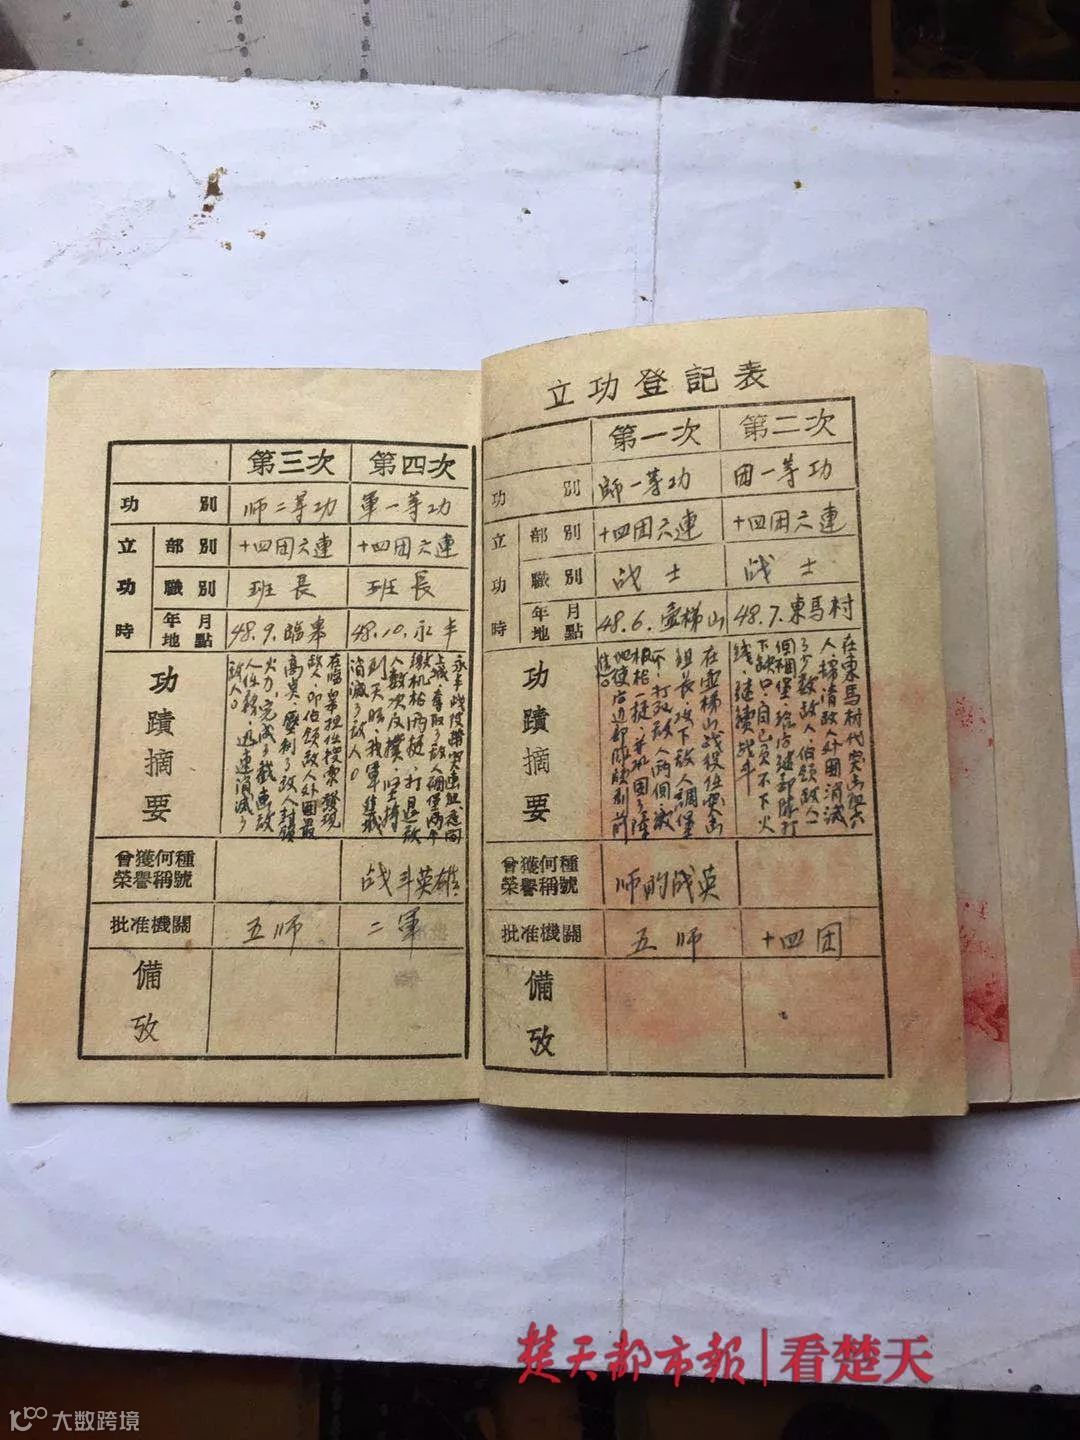 立功登記表
第一次 第二次
功別 師一等功 团一等功
立功時 部別 十四团六連 十四团六連
職別 战士 战士
年月地點 48.6.壶梯山 48.7.東馬村
功蹟摘要
在壶梯山战役任突击
組長，攻下敌人碉堡
一个，打敌人两個，敌
在東馬村代突击組六
人，掃清敌人外围，消滅
了少数敌人，伯領敌人一
個碉堡，給后继部隊打
下缺口，自己負不下火
线，继續战斗
曾獲何種榮譽稱號 师的战英
批准機關 五师 十四团
備攷
第三次 第四次
功別 师二等功 軍一等功
立功時 部別 十四团六連 十四团六連
職別 班長 班長
年月地點 48.9.臨皋 48.10.永丰
功蹟摘要
在臨皋担任搜索，發現
敌人，即伯領敌人外围最
高点，壓制了敌人封鎖
火力，完成了截連敌
人任務，迅速消滅了
敌人。
永丰战役帶突連組，夜间
上城，奪取了敌人碉堡两个，
缴机枪两挺，打退敌
人数次反撲，坚持
到天明，我軍進城
消滅了敌人。
曾獲何種榮譽稱號 战斗英雄
批准機關 五师 二軍
備攷
楚天都市報|看楚天
大数跨境